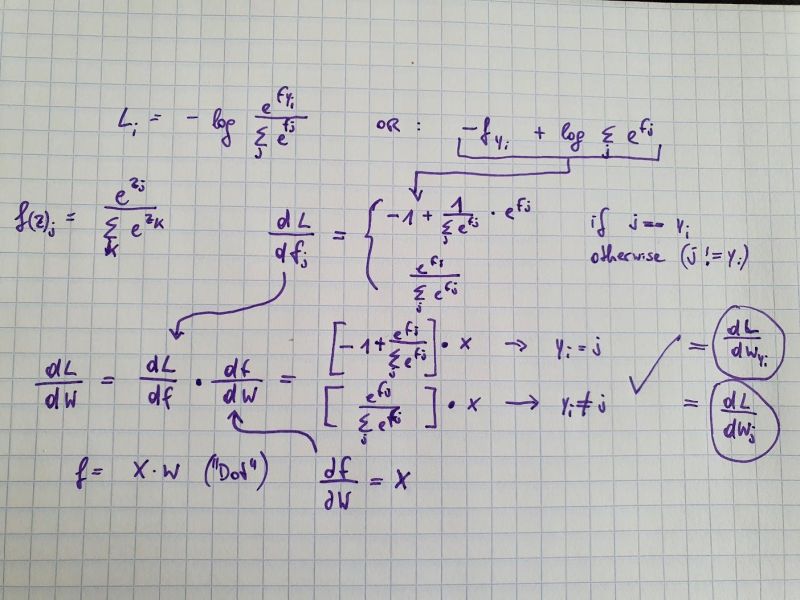 L_i = - log e^{f_{y_i}} / Σ_j e^{f_j} OR : -f_{y_i} + log Σ_j e^{f_j}
f(z)_j = e^{z_j} / Σ_k e^{z_k}
dL / df_j = { -1 + 1 / Σ_j e^{f_j} · e^{f_j} if j == y_i
e^{f_j} / Σ_j e^{f_j} otherwise (j != y_i)
dL / dW = dL / df · df / dW = [ -1 + e^{f_j} / Σ_j e^{f_j} ] · x → y_i = j = dL / dW_{y_i}
[ e^{f_j} / Σ_j e^{f_j} ] · x → y_i ≠ j = dL / dW_j
f = X · W ("Dot") df / dW = X